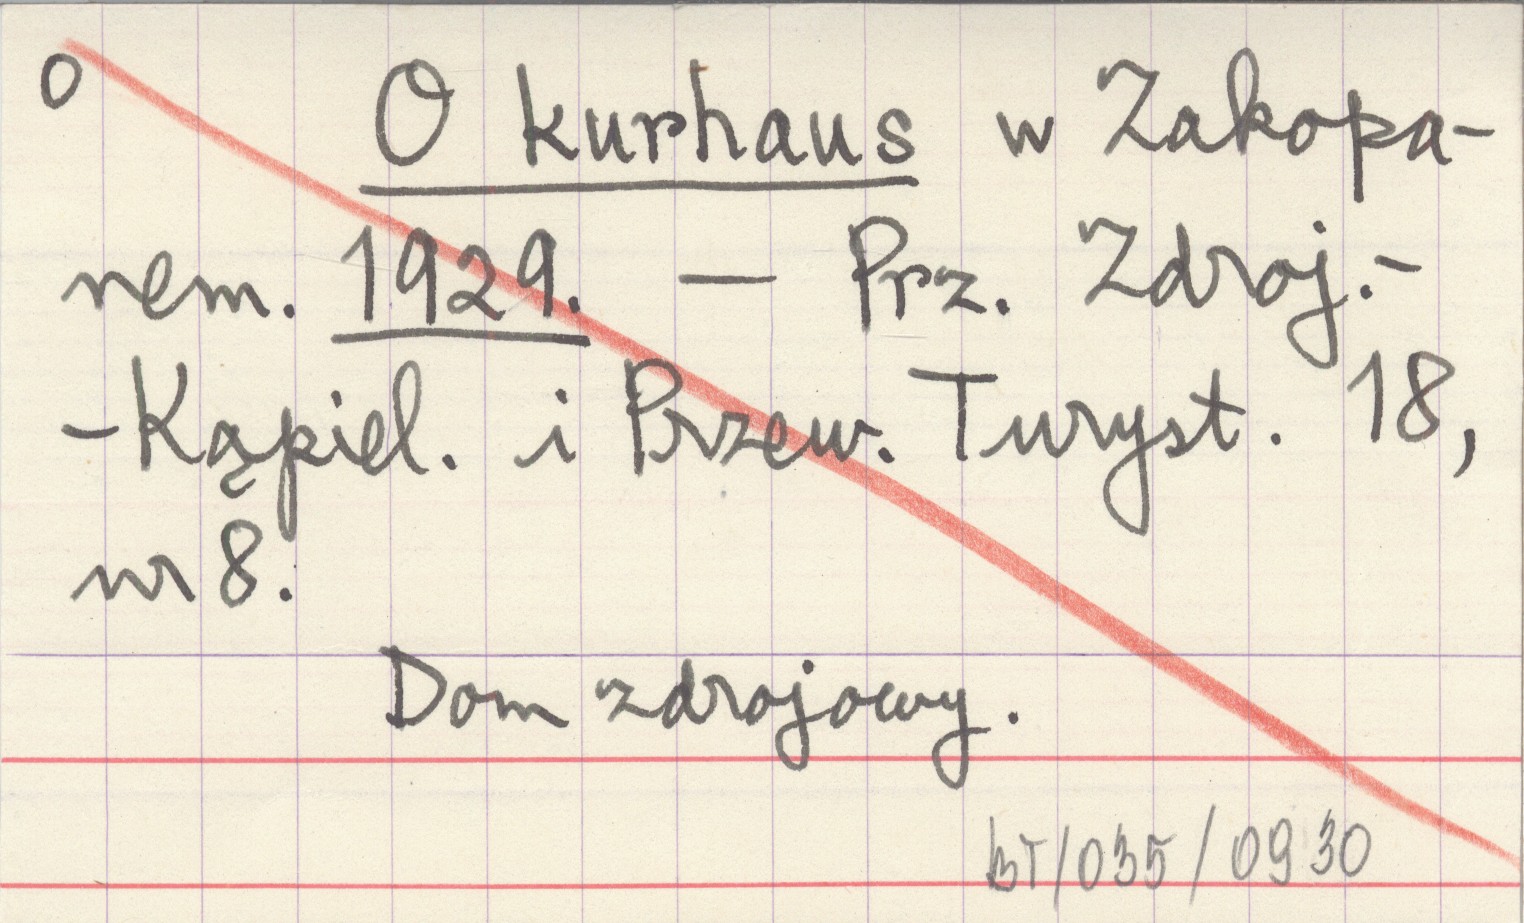 o O kurhaus w Zakopa-
nem. 1929. — Prz. Zdroj.-
-Kąpiel. i Przew. Turyst. 18,
nr 8.
Dom zdrojowy.
BT/035/0930